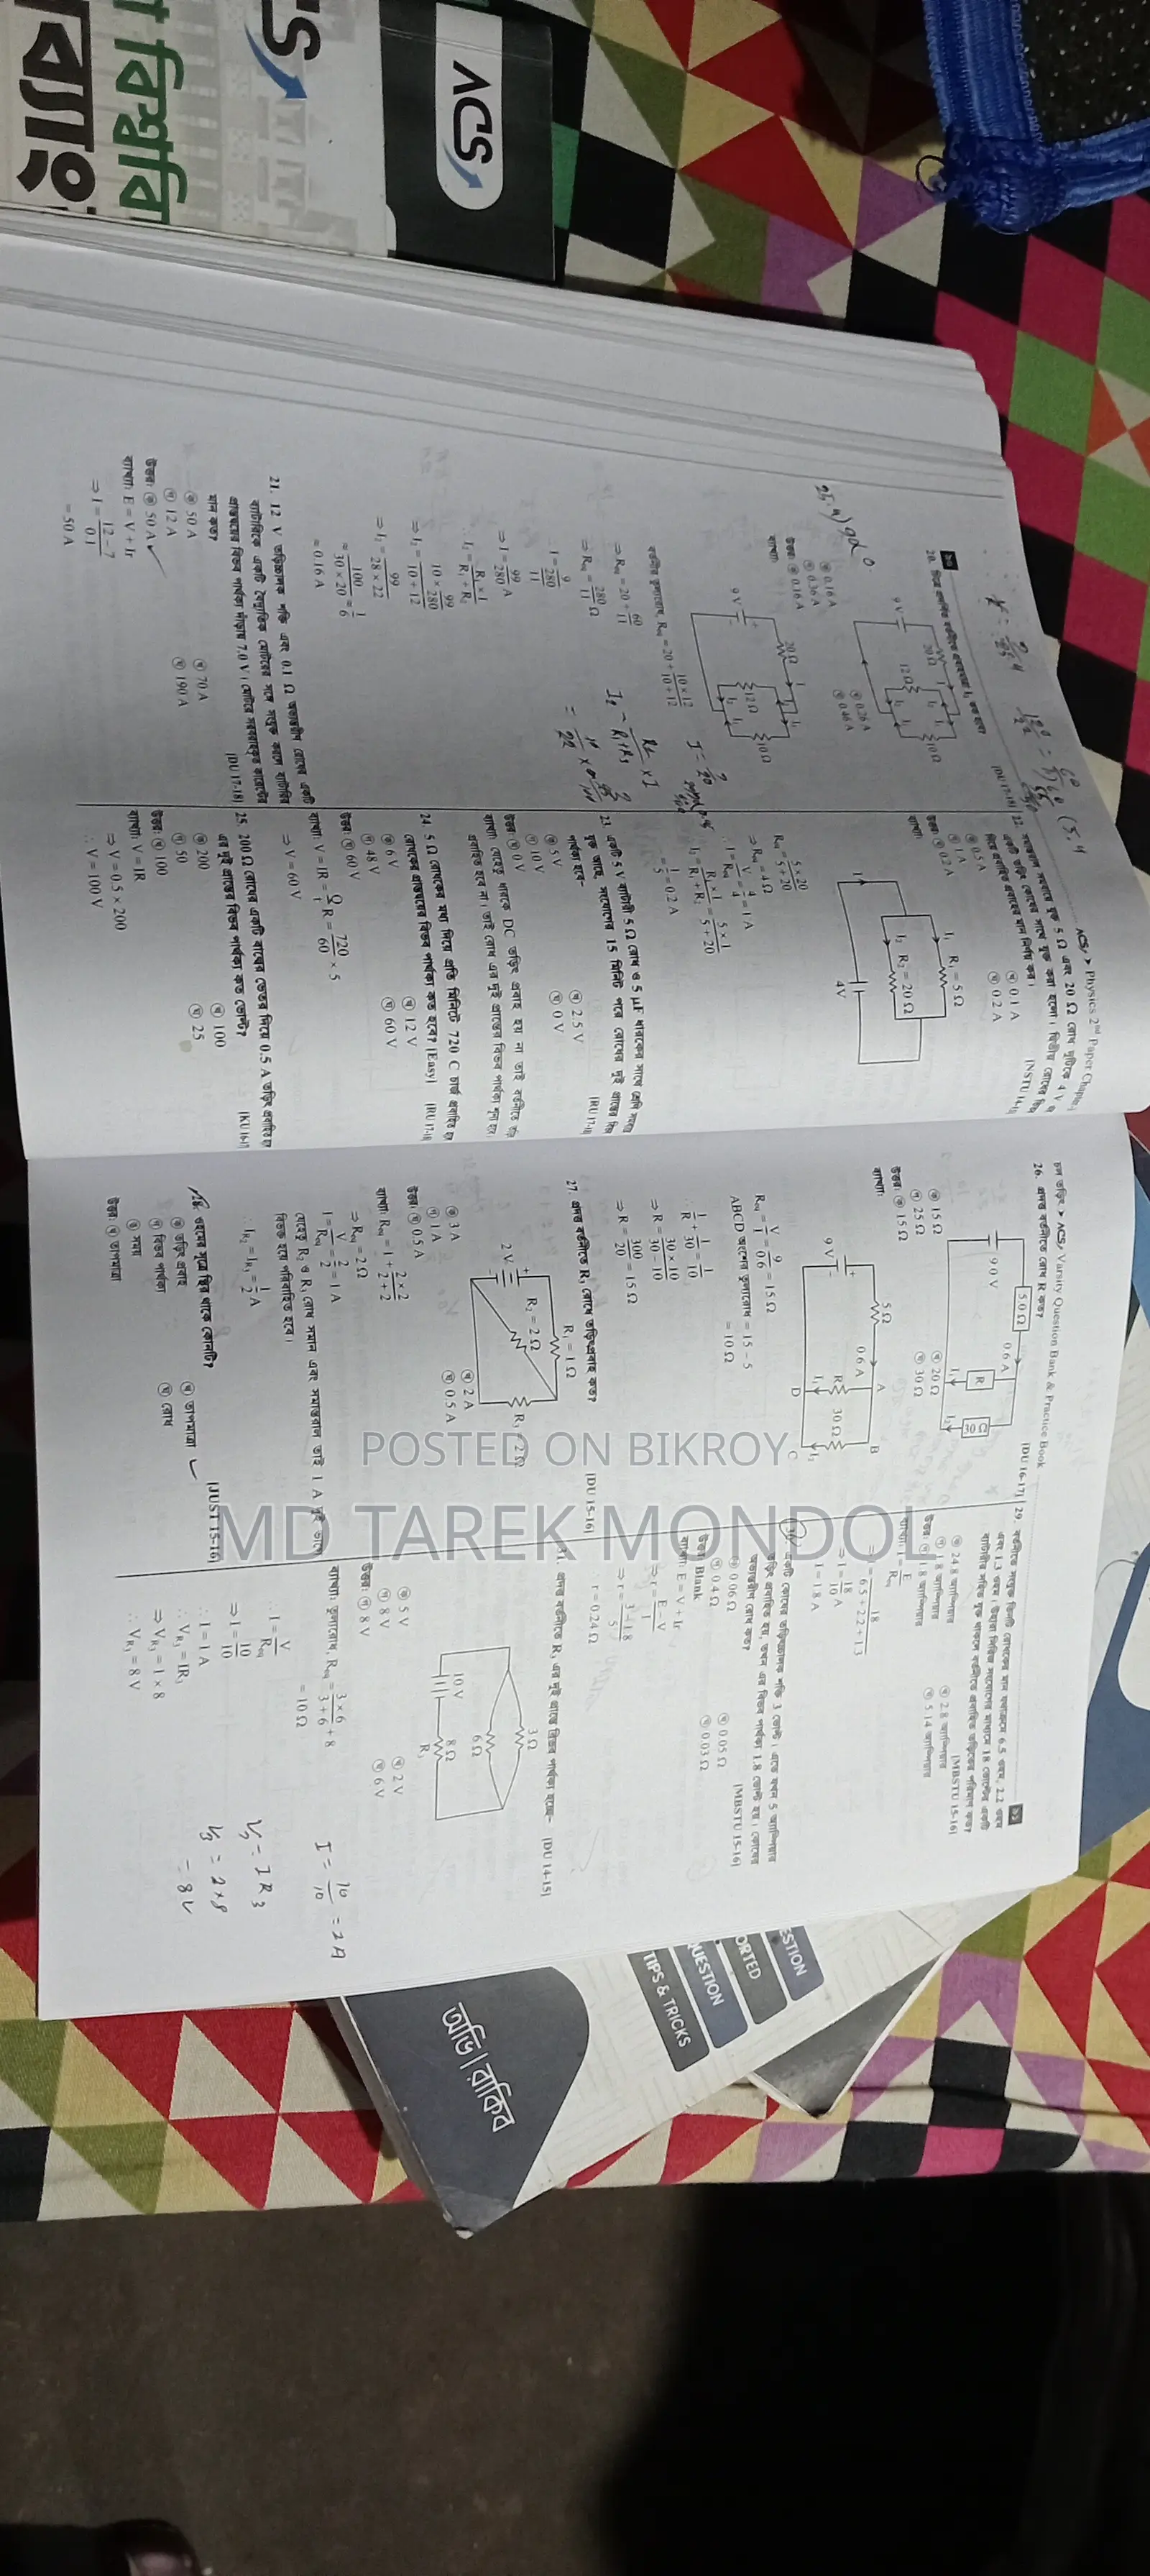 ACS > Physics 2nd Paper Chapter
20.
9 V
20 Ω
12 Ω
10 Ω
0.16 A
0.26 A
0.36 A
0.46 A
উত্তর: 0.16 A
ব্যাখ্যা:
9 V
20 Ω
12 Ω
10 Ω
বর্তনীর তুল্যরোধ, Req = 20 + 10 × 12 / 10 + 12
⇒ Req = 20 + 60/11
⇒ Req = 280/11 Ω
∴ I = 9 / 280/11
⇒ I = 99/280 A
∴ I₂ = R₁ × I / R₁ + R₂
⇒ I₂ = 10 × 99/280 / 10 + 12
⇒ I₂ = 99 / 28 × 22
≈ 100 / 30 × 20 = 1/6
≈ 0.16 A
21. 12 V তড়িচ্চালক শক্তি এবং 0.1 Ω অভ্যন্তরীণ রোধের একটি
ব্যাটারিকে একটি বৈদ্যুতিক মোটরের সঙ্গে সংযুক্ত করলে ব্যাটারির
প্রান্তদ্বয়ের বিভব পার্থক্য দাঁড়ায় 7.0 V। মোটরে সরবরাহকৃত কারেন্টের
মান কত? [DU 17-18]
50 A
70 A
12 A
190 A
উত্তর: 50 A
ব্যাখ্যা: E = V + Ir
⇒ I = 12 − 7 / 0.1
= 50 A
22. সমান্তরাল সমবায়ে যুক্ত 5 Ω এবং 20 Ω রোধ দুটিকে 4 V
[NSTU 14-1
0.5 A
0.1 A
1 A
0.2 A
উত্তর: 0.2 A
ব্যাখ্যা:
I₁ R₁ = 5 Ω
I₂ R₂ = 20 Ω
4V
Req = 5 × 20 / 5 + 20
⇒ Req = 4 Ω
∴ I = V/Req = 4/4 = 1 A
I₂ = R₁ × I / R₁ + R₂ = 5 × 1 / 5 + 20
= 1/5 = 0.2 A
23. একটি 5 V ব্যাটারী 5 Ω রোধ ও 5 μF ধারকের সাথে শ্রেণি
যুক্ত আছে, সংযোগের 15 মিনিট পরে রোধের দুই প্রান্তের
পার্থক্য হবে- [RU 17-1
5 V
2.5 V
10 V
0 V
উত্তর: 0 V
ব্যাখ্যা: যেহেতু ধারকে DC তড়িৎ প্রবাহ হয় না তাই বর্তনীতে
প্রবাহিত হবে না। তাই রোধ এর দুই প্রান্তের বিভব পার্থক্য শূন্য হবে।
24. 5 Ω রোধকের মধ্য দিয়ে প্রতি মিনিটে 720 C চার্জ প্রবাহিত
রোধকের প্রান্তদ্বয়ের বিভব পার্থক্য কত হবে? [Easy] [RU 17-1
6 V
12 V
48 V
60 V
উত্তর: 60 V
ব্যাখ্যা: V = IR = Q/t R = 720/60 × 5
⇒ V = 60 V
25. 200 Ω রোধের একটি বাল্বের ভেতর দিয়ে 0.5 A তড়িৎ প্রবাহিত
এর দুই প্রান্তের বিভব পার্থক্য কত ভোল্ট? [KU 16-1
200
100
50
25
উত্তর: 100
ব্যাখ্যা: V = IR
⇒ V = 0.5 × 200
∴ V = 100 V
চল তড়িৎ > ACS > Varsity Question Bank & Practice Book
26. প্রদত্ত বর্তনীতে রোধ R কত? [DU 16-17]
9.0 V
5.0 Ω
0.6 A
R
15 Ω
20 Ω
25 Ω
30 Ω
উত্তর: 15 Ω
ব্যাখ্যা:
9 V
5 Ω
0.6 A
A
B
R
30 Ω
D
C
Req = V/I = 9/0.6 = 15 Ω
ABCD অংশের তুল্যরোধ = 15 − 5
= 10 Ω
∴ 1/R + 1/30 = 1/10
⇒ R = 30 × 10 / 30 − 10
⇒ R = 300/20 = 15 Ω
27. প্রদত্ত বর্তনীতে R₃ রোধে তড়িৎপ্রবাহ কত? [DU 15-16]
R₁ = 1 Ω
R₂ = 2 Ω
R₃ = 2 Ω
2 V
3 A
2 A
1 A
0.5 A
উত্তর: 0.5 A
ব্যাখ্যা: Req = 1 + 2 × 2 / 2 + 2
⇒ Req = 2 Ω
I = V/Req = 2/2 = 1 A
যেহেতু R₂ ও R₃ রোধ সমান এবং সমান্তরাল তাই 1 A দুই ভাগে
বিভক্ত হয়ে পরিবাহিত হবে।
∴ IR₂ = IR₃ = 1/2 A
28. ওহমের সূত্রে স্থির থাকে কোনটি? [JUST 15-16]
তড়িৎ প্রবাহ
তাপমাত্রা
বিভব পার্থক্য
রোধ
সময়
উত্তর: তাপমাত্রা
29. বর্তনীতে সংযুক্ত তিনটি রোধকের মান যথাক্রমে 6.5 ওহম, 2.2 ওহম
এবং 1.3 ওহম। উহারা সিরিজ সংযোগের মাধ্যমে 18 ভোল্টের একটি
ব্যাটারীর সহিত যুক্ত থাকলে বর্তনীতে প্রবাহিত তড়িতের পরিমাণ কত?
[MBSTU 15-16]
24.8 অ্যাম্পিয়ার
2.8 অ্যাম্পিয়ার
1.8 অ্যাম্পিয়ার
5.14 অ্যাম্পিয়ার
উত্তর: 1.8 অ্যাম্পিয়ার
ব্যাখ্যা: I = E/Req
⇒ I = 18 / 6.5 + 2.2 + 1.3
⇒ I = 18/10 A
∴ I = 1.8 A
30. একটি কোষের তড়িচ্চালক শক্তি 3 ভোল্ট। এতে যখন 5 অ্যাম্পিয়ার
তড়িৎ প্রবাহিত হয়, তখন এর বিভব পার্থক্য 1.8 ভোল্ট হয়। কোষের
অভ্যন্তরীণ রোধ কত? [MBSTU 15-16]
0.06 Ω
0.05 Ω
0.4 Ω
0.03 Ω
উত্তর: Blank
ব্যাখ্যা: E = V + Ir
⇒ r = E − V / I
⇒ r = 3 − 1.8 / 5
∴ r = 0.24 Ω
31. প্রদত্ত বর্তনীতে R₃ এর দুই প্রান্তে বিভব পার্থক্য হচ্ছে- [DU 14-15]
3 Ω
6 Ω
8 Ω
R₃
10 V
5 V
2 V
8 V
6 V
উত্তর: 8 V
ব্যাখ্যা: তুল্যরোধ, Req = 3 × 6 / 3 + 6 + 8
= 10 Ω
∴ I = V/Req
⇒ I = 10/10
∴ I = 1 A
∴ VR₃ = IR₃
⇒ VR₃ = 1 × 8
∴ VR₃ = 8 V
I = 10/10 = 1 A
V₃ = I R₃
V₃ = 1 × 8
= 8 V
ACS
CS
বিশ্ববি
ব্যাং
ESTION
ORTED
QUESTION
TIPS & TRICKS
অভি।রাকিব
POSTED ON BIKROY
MD TAREK MONDOL